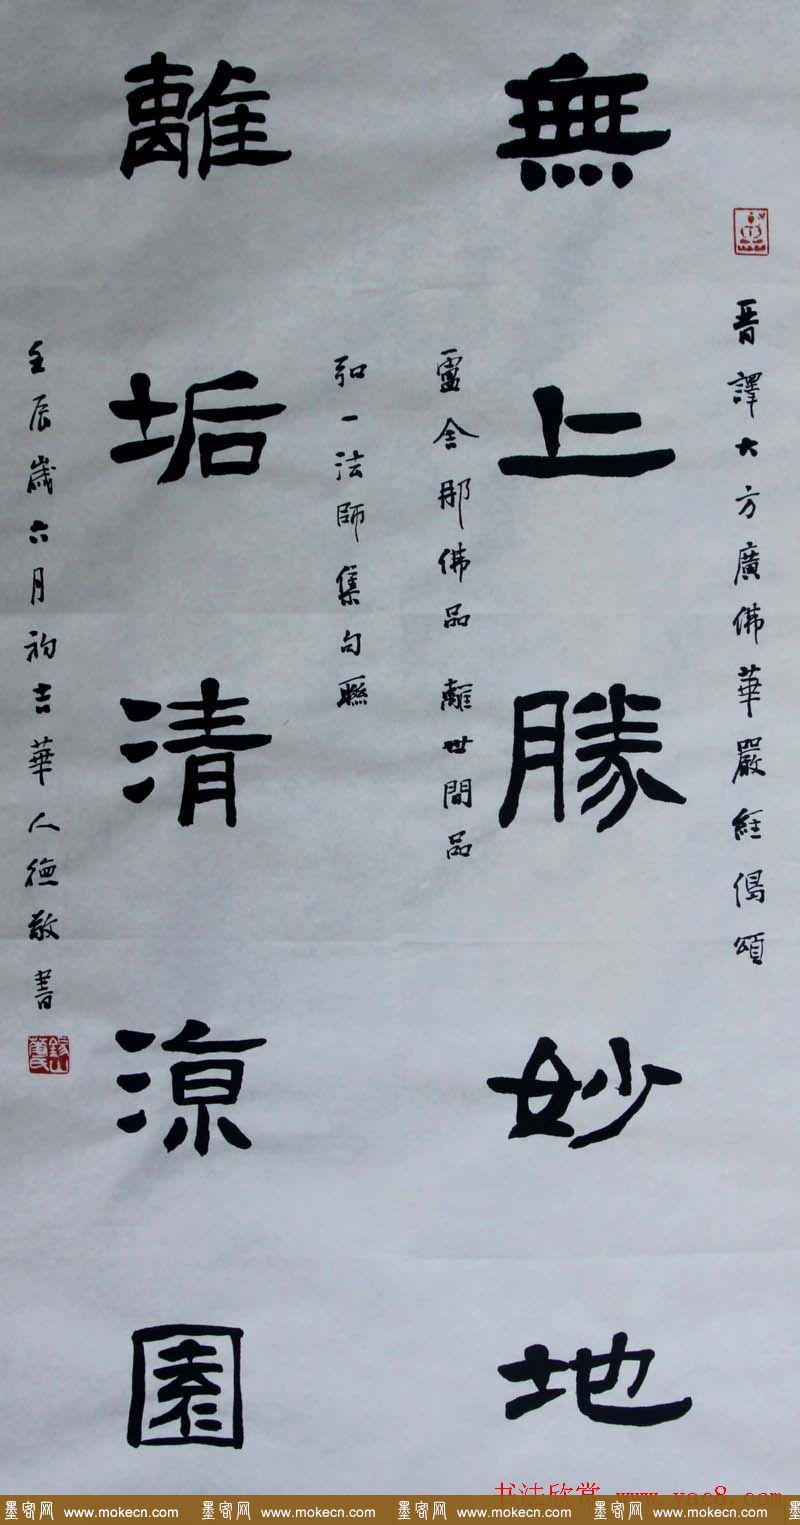 晋譯大方廣佛華嚴經偈頌
無上勝妙地
盧舍那佛品 離世間品
弘一法師集句聯
離垢清涼園
壬辰歲六月初吉華人德敬書
书法欣赏 www.yac8.com
墨客网 www.mokecn.com 墨客网 www.mokecn.com 墨客网 www.mokecn.com 墨客网 www.mokecn.com